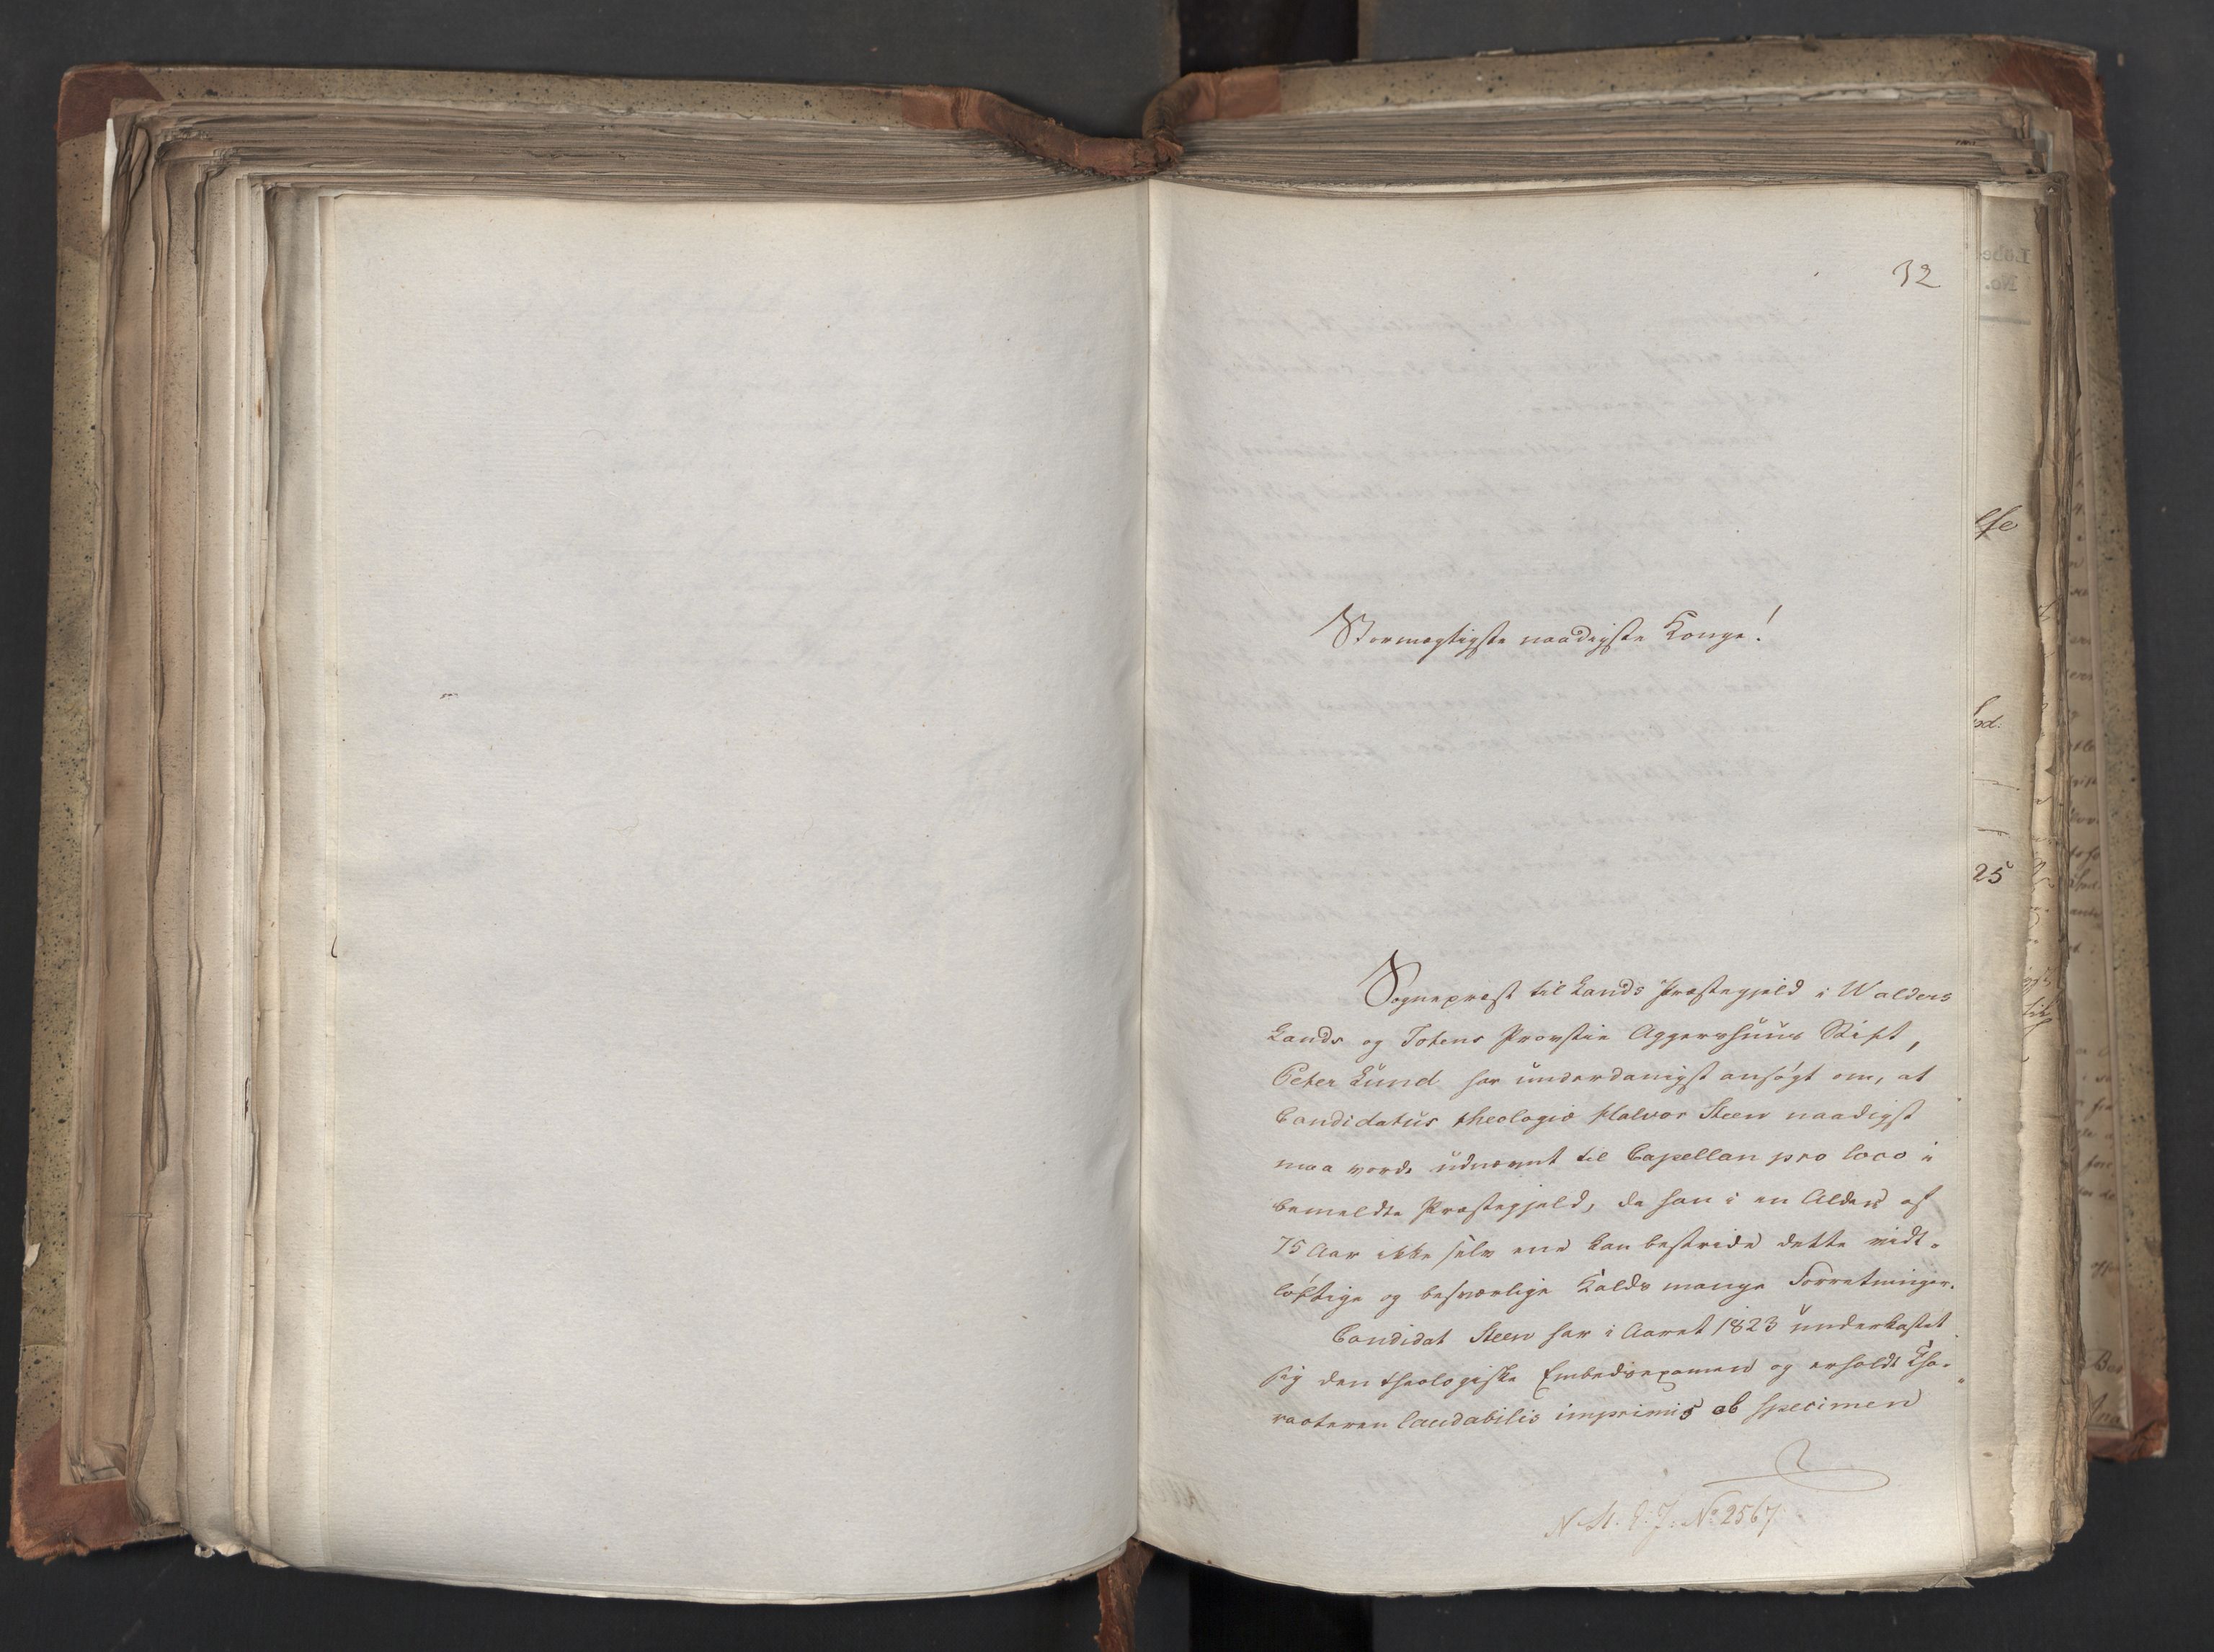 32
Stormægtigste naadigste Konge!
Sognepræst til Lands Præstegjeld i Walders
Lands og Totens Provstie Aggershuus Stift,
Peter Lund har underdanigst ansøgt om, at
Candidatus theologiæ Halvor Steen naadigst
maa vorde udnævnt til Capellan pro loco i
bemeldte Præstegjeld, da han i en Alder af
75 Aar ikke selv ene kan bestride dette vidt-
løftige og besværlige Kalds mange Forretninger.
Candidat Steen har i Aaret 1823 underkastet
sig den theologiske Embedsexamen og erholdt Cha-
racteren laudabilis imprimis ob specimen
N. St. E. J. No 2567
25